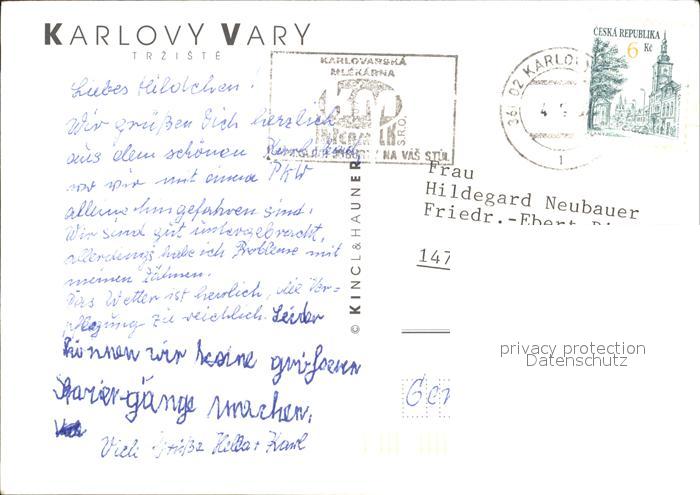 KARLOVY VARY
TRŽIŠTĚ
Liebes Hildchen!
Wir grüßen Dich herzlich
aus dem schönen
wo wir mit einem PKW
alleine hingefahren sind.
Wir sind gut untergebracht,
allerdings habe ich Probleme mit
meinen Zähnen.
Das Wetter ist herrlich, die Ver=
pflegung zu reichlich. Leider
können wir keine größeren
Spazier-gänge machen.
Viele Grüße Hella + Karl
© KINCL & HAUNER
KARLOVARSKÁ
MLÉKÁRNA
S.R.O.
NA VÁŠ STŮL
360 02 KARLOVY
1
ČESKÁ REPUBLIKA
6 Kč
Frau
Hildegard Neubauer
Friedr.-Ebert
147
Ger
privacy protection
Datenschutz